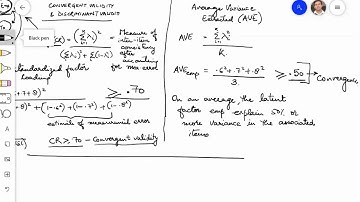 CONVERGENT VALIDITY
& DISCRIMINANT VALIDITY
Black pen
(Σλ)²
(Σλ)² + Σ(1-λ²)
Measure of
inter-item
consistency
after
accounting
for meas error
standardized factor
loading
+.7+.8)²
≥ .70
+.8)² + (1-.6²) + (1-.7²) + (1-.8²)
estimate of measurement error
CR ≥ .70 - Convergent validity
Average Variance
Extracted (AVE)
AVE = Σλ²
k
AVE emp = .6²+.7²+.8²
3
≥ .50
Convergence
On an average the latent
factor emp explain 50% or
more variance in the associated
items